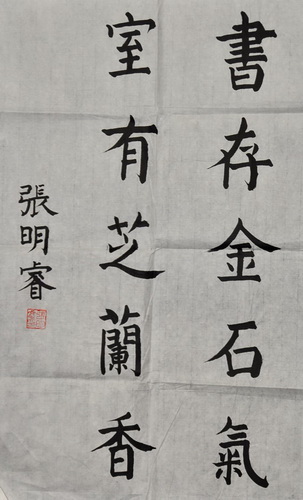 書存金石氣
室有芝蘭香
張明睿